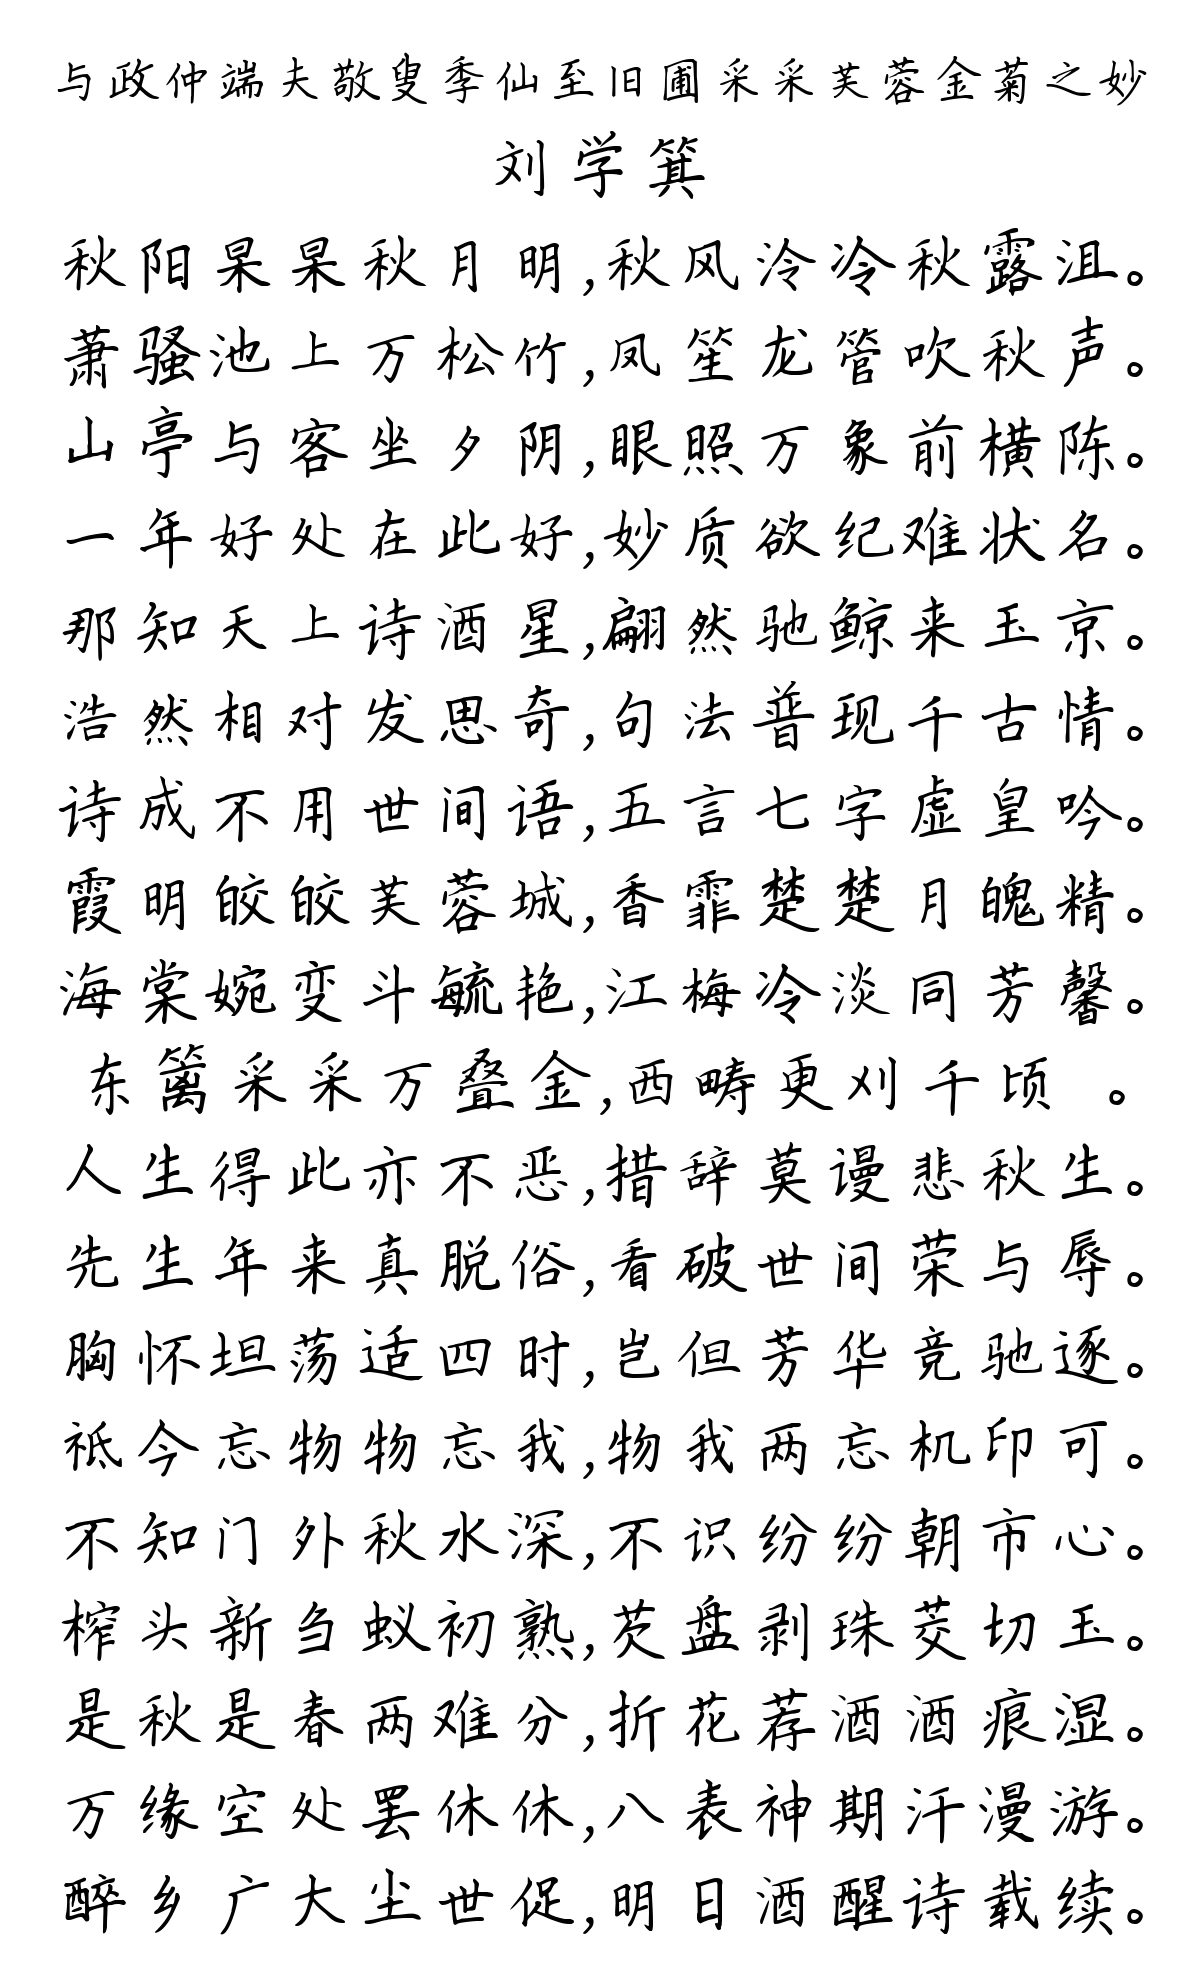 与政仲端夫敬叟季仙至旧圃采采芙蓉金菊之妙
刘学箕
秋阳杲杲秋月明,秋风泠冷秋露沮。
萧骚池上万松竹,凤笙龙管吹秋声。
山亭与客坐夕阴,眼照万象前横陈。
一年好处在此好,妙质欲纪难状名。
那知天上诗酒星,翩然驰鲸来玉京。
浩然相对发思奇,句法普现千古情。
诗成不用世间语,五言七字虚皇吟。
霞明皎皎芙蓉城,香霏楚楚月魄精。
海棠婉变斗毓艳,江梅冷淡同芳馨。
东篱采采万叠金,西畴更刈千顷 。
人生得此亦不恶,措辞莫谩悲秋生。
先生年来真脱俗,看破世间荣与辱。
胸怀坦荡适四时,岂但芳华竞驰逐。
祗今忘物物忘我,物我两忘机印可。
不知门外秋水深,不识纷纷朝市心。
榨头新刍蚁初熟,芡盘剥珠茭切玉。
是秋是春两难分,折花荐酒酒痕湿。
万缘空处罢休休,八表神期汗漫游。
醉乡广大尘世促,明日酒醒诗载续。